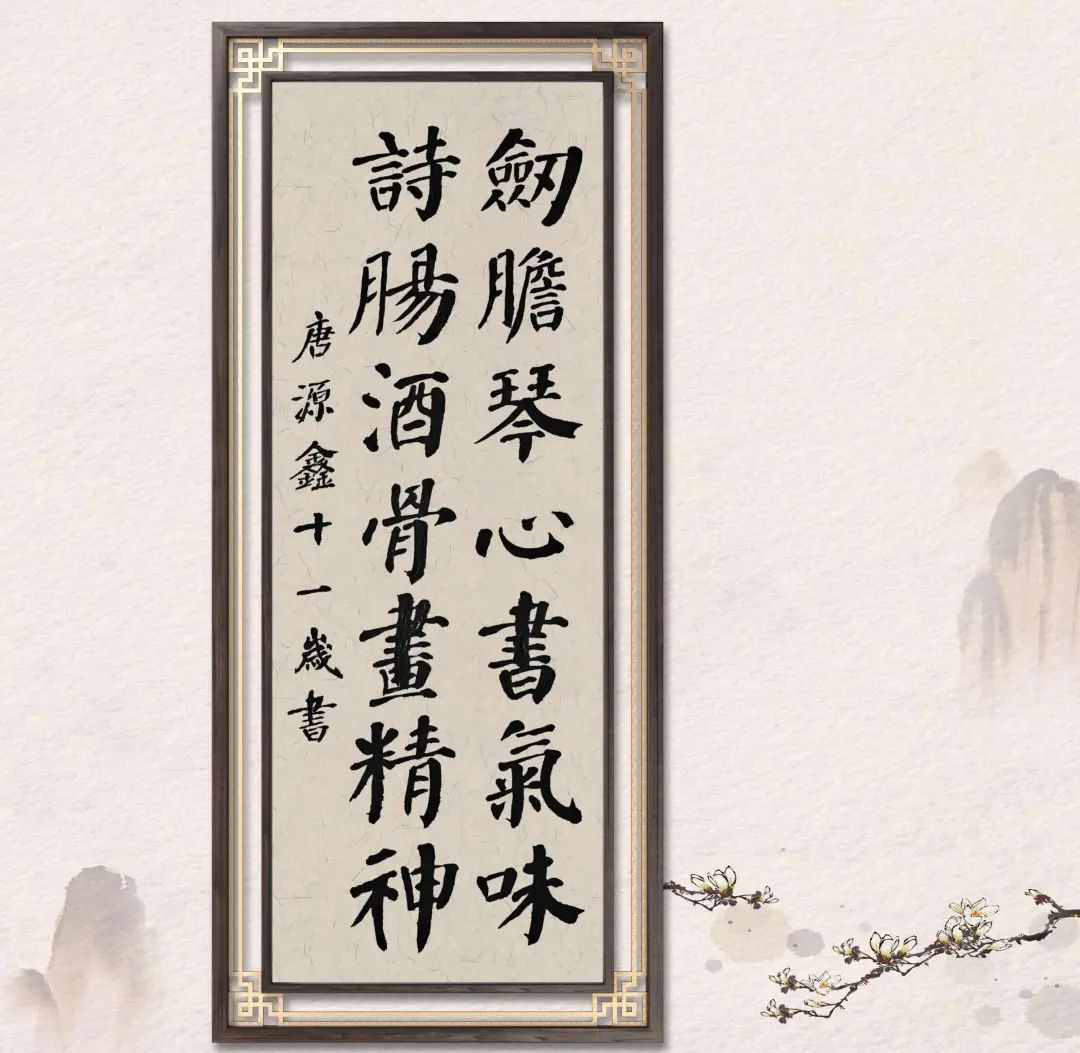 劒膽琴心書氣味
詩腸酒骨畫精神
唐源鑫十一歲書